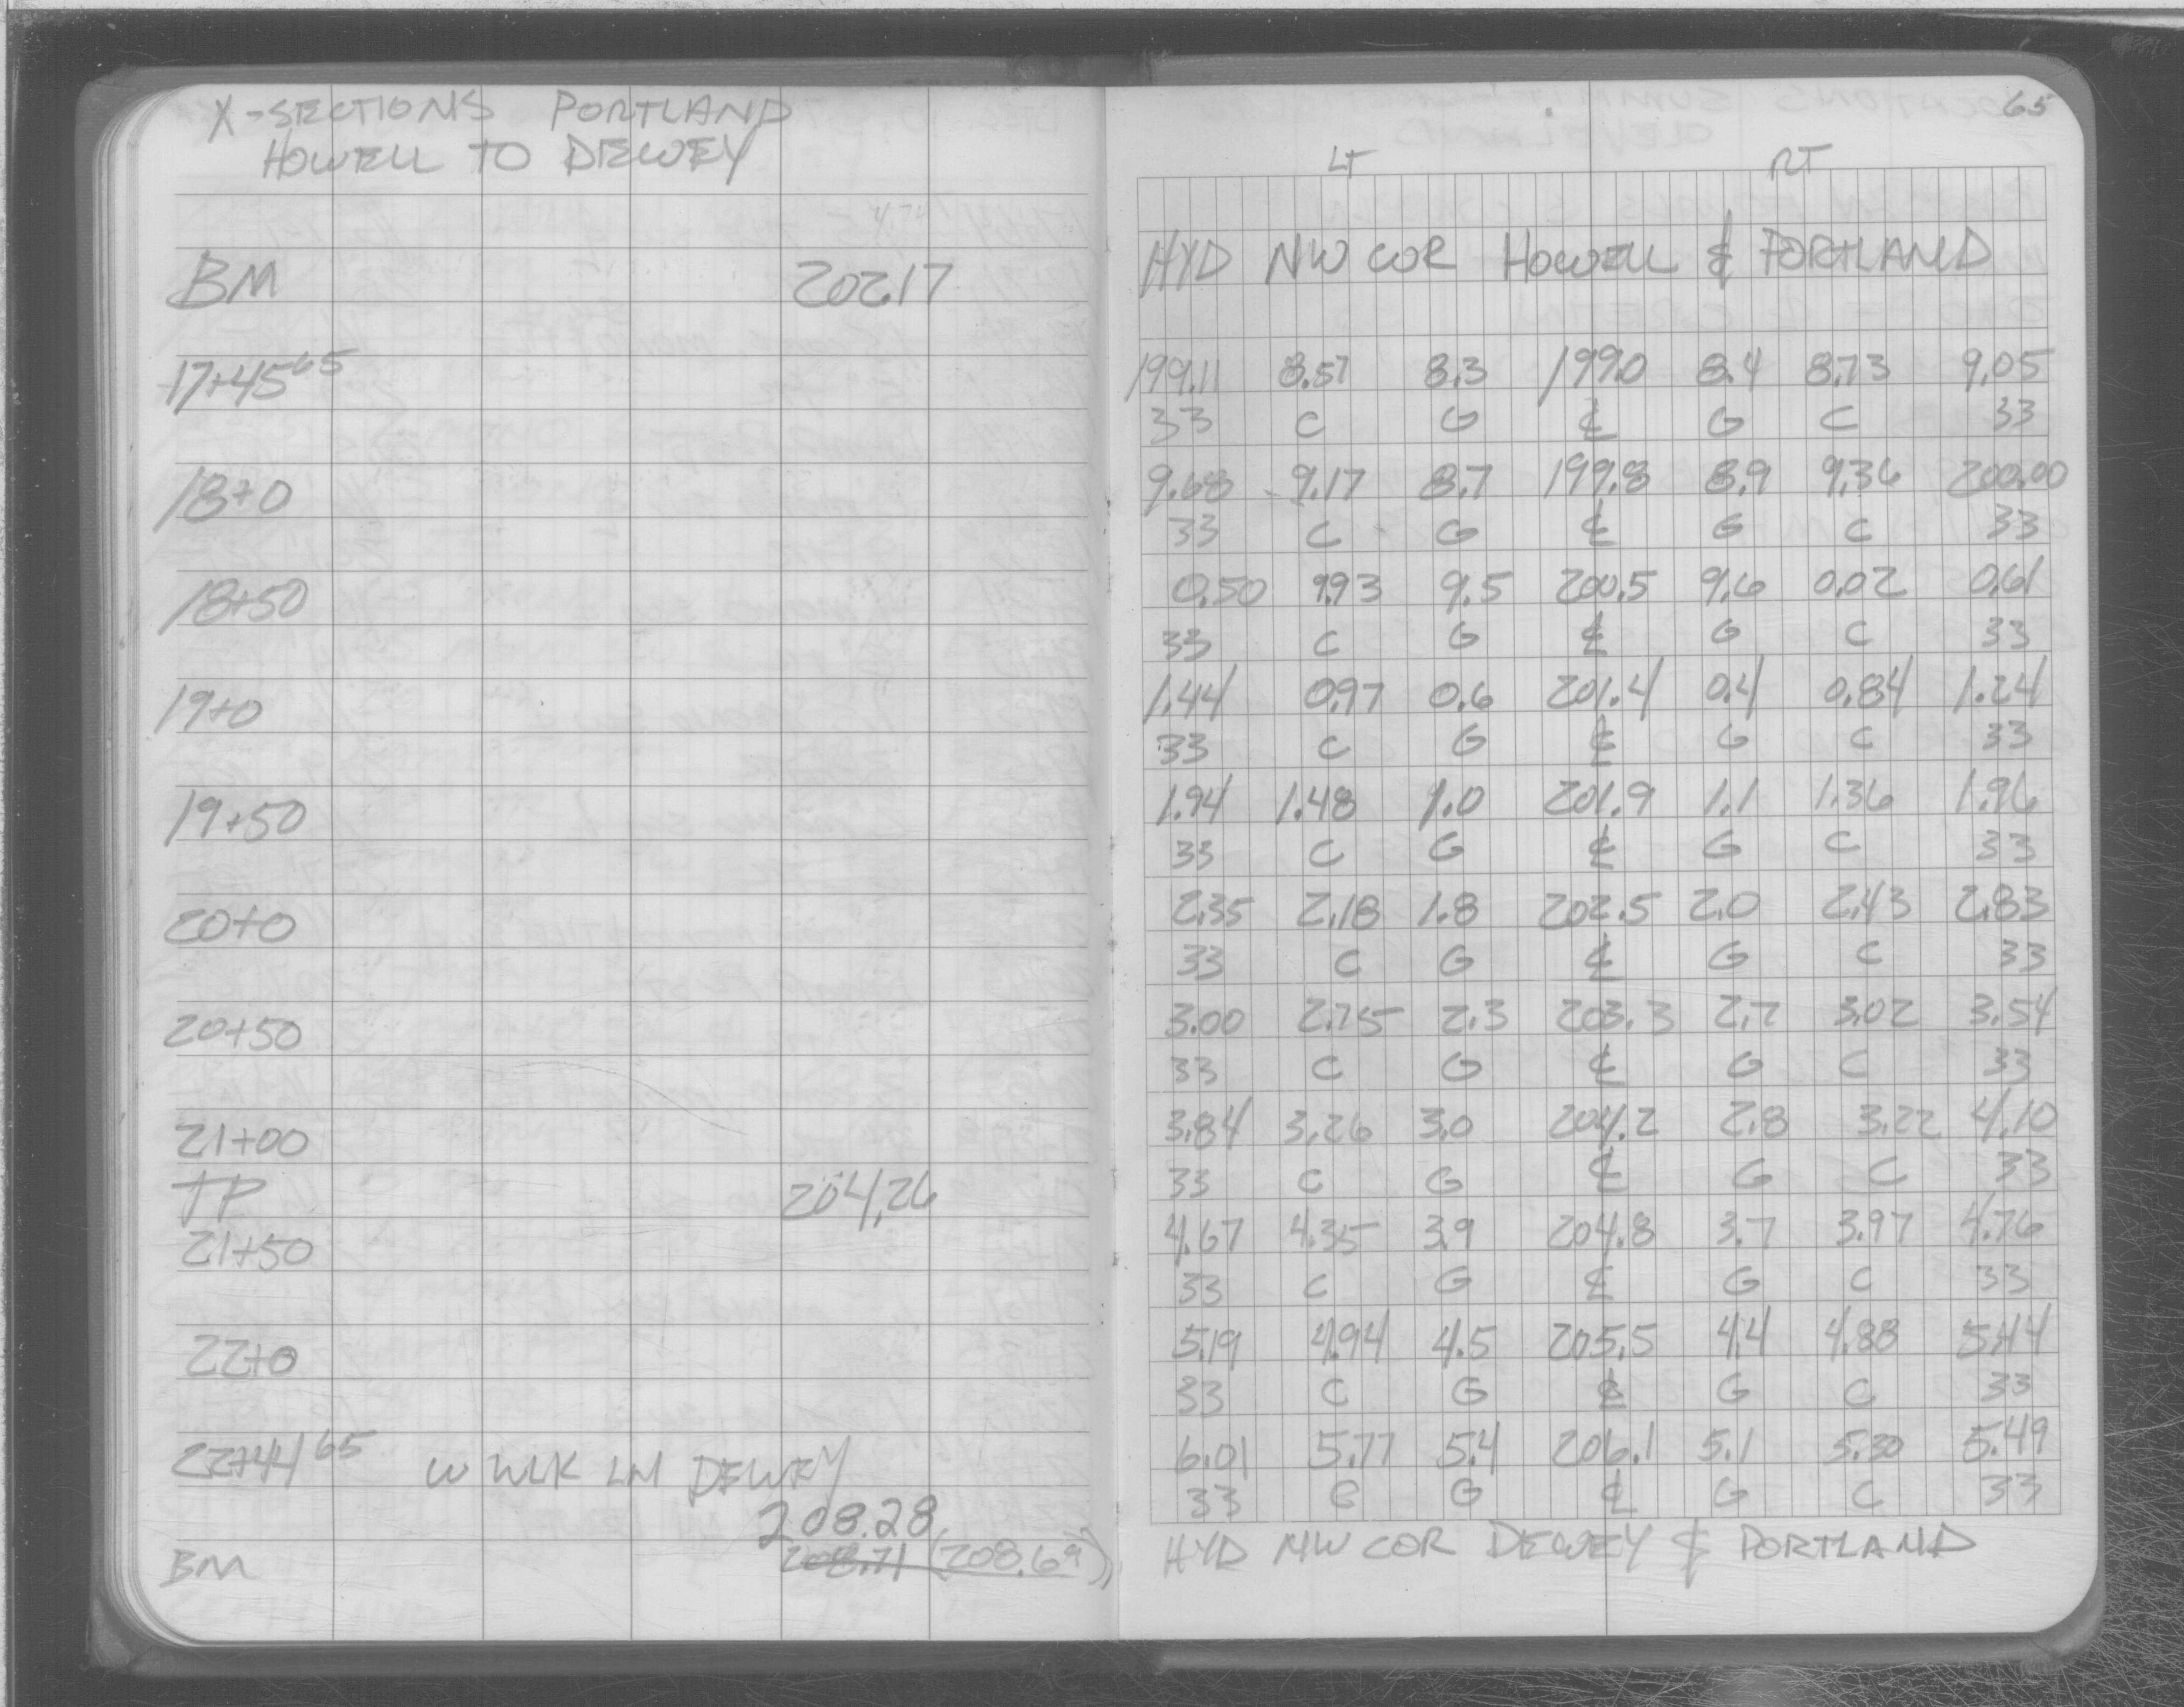 X-SECTIONS PORTLAND
HOWELL TO DEWEY
65
LT RT
4.74
BM 202.17 HYD NW COR HOWELL & PORTLAND
17+45⁶⁵ 199.11 8.57 8.3 199.0 8.4 8.73 9.05
33 C G ℄ G C 33
18+0 9.68 9.17 8.7 199.8 8.9 9.36 200.00
33 C G ℄ G C 33
18+50 0.50 9.93 9.5 200.5 9.6 0.02 0.61
33 C G ℄ G C 33
19+0 1.44 0.97 0.6 201.4 0.4 0.84 1.24
33 C G ℄ G C 33
19+50 1.94 1.48 1.0 201.9 1.1 1.36 1.96
33 C G ℄ G C 33
20+0 2.35 2.18 1.8 202.5 2.0 2.43 2.83
33 C G ℄ G C 33
20+50 3.00 2.75 2.3 203.3 2.7 3.02 3.54
33 C G ℄ G C 33
21+00 3.84 3.26 3.0 204.2 2.8 3.22 4.10
TP 204.26 33 C G ℄ G C 33
21+50 4.67 4.35 3.9 204.8 3.7 3.97 4.76
33 C G ℄ G C 33
22+0 5.19 4.94 4.5 205.5 4.4 4.88 5.44
33 C G ℄ G C 33
22+44⁶⁵ W WLK LN DEWEY 6.01 5.77 5.4 206.1 5.1 5.30 5.49
33 C G ℄ G C 33
208.28
BM 208.71 (208.69) HYD NW COR DEWEY & PORTLAND